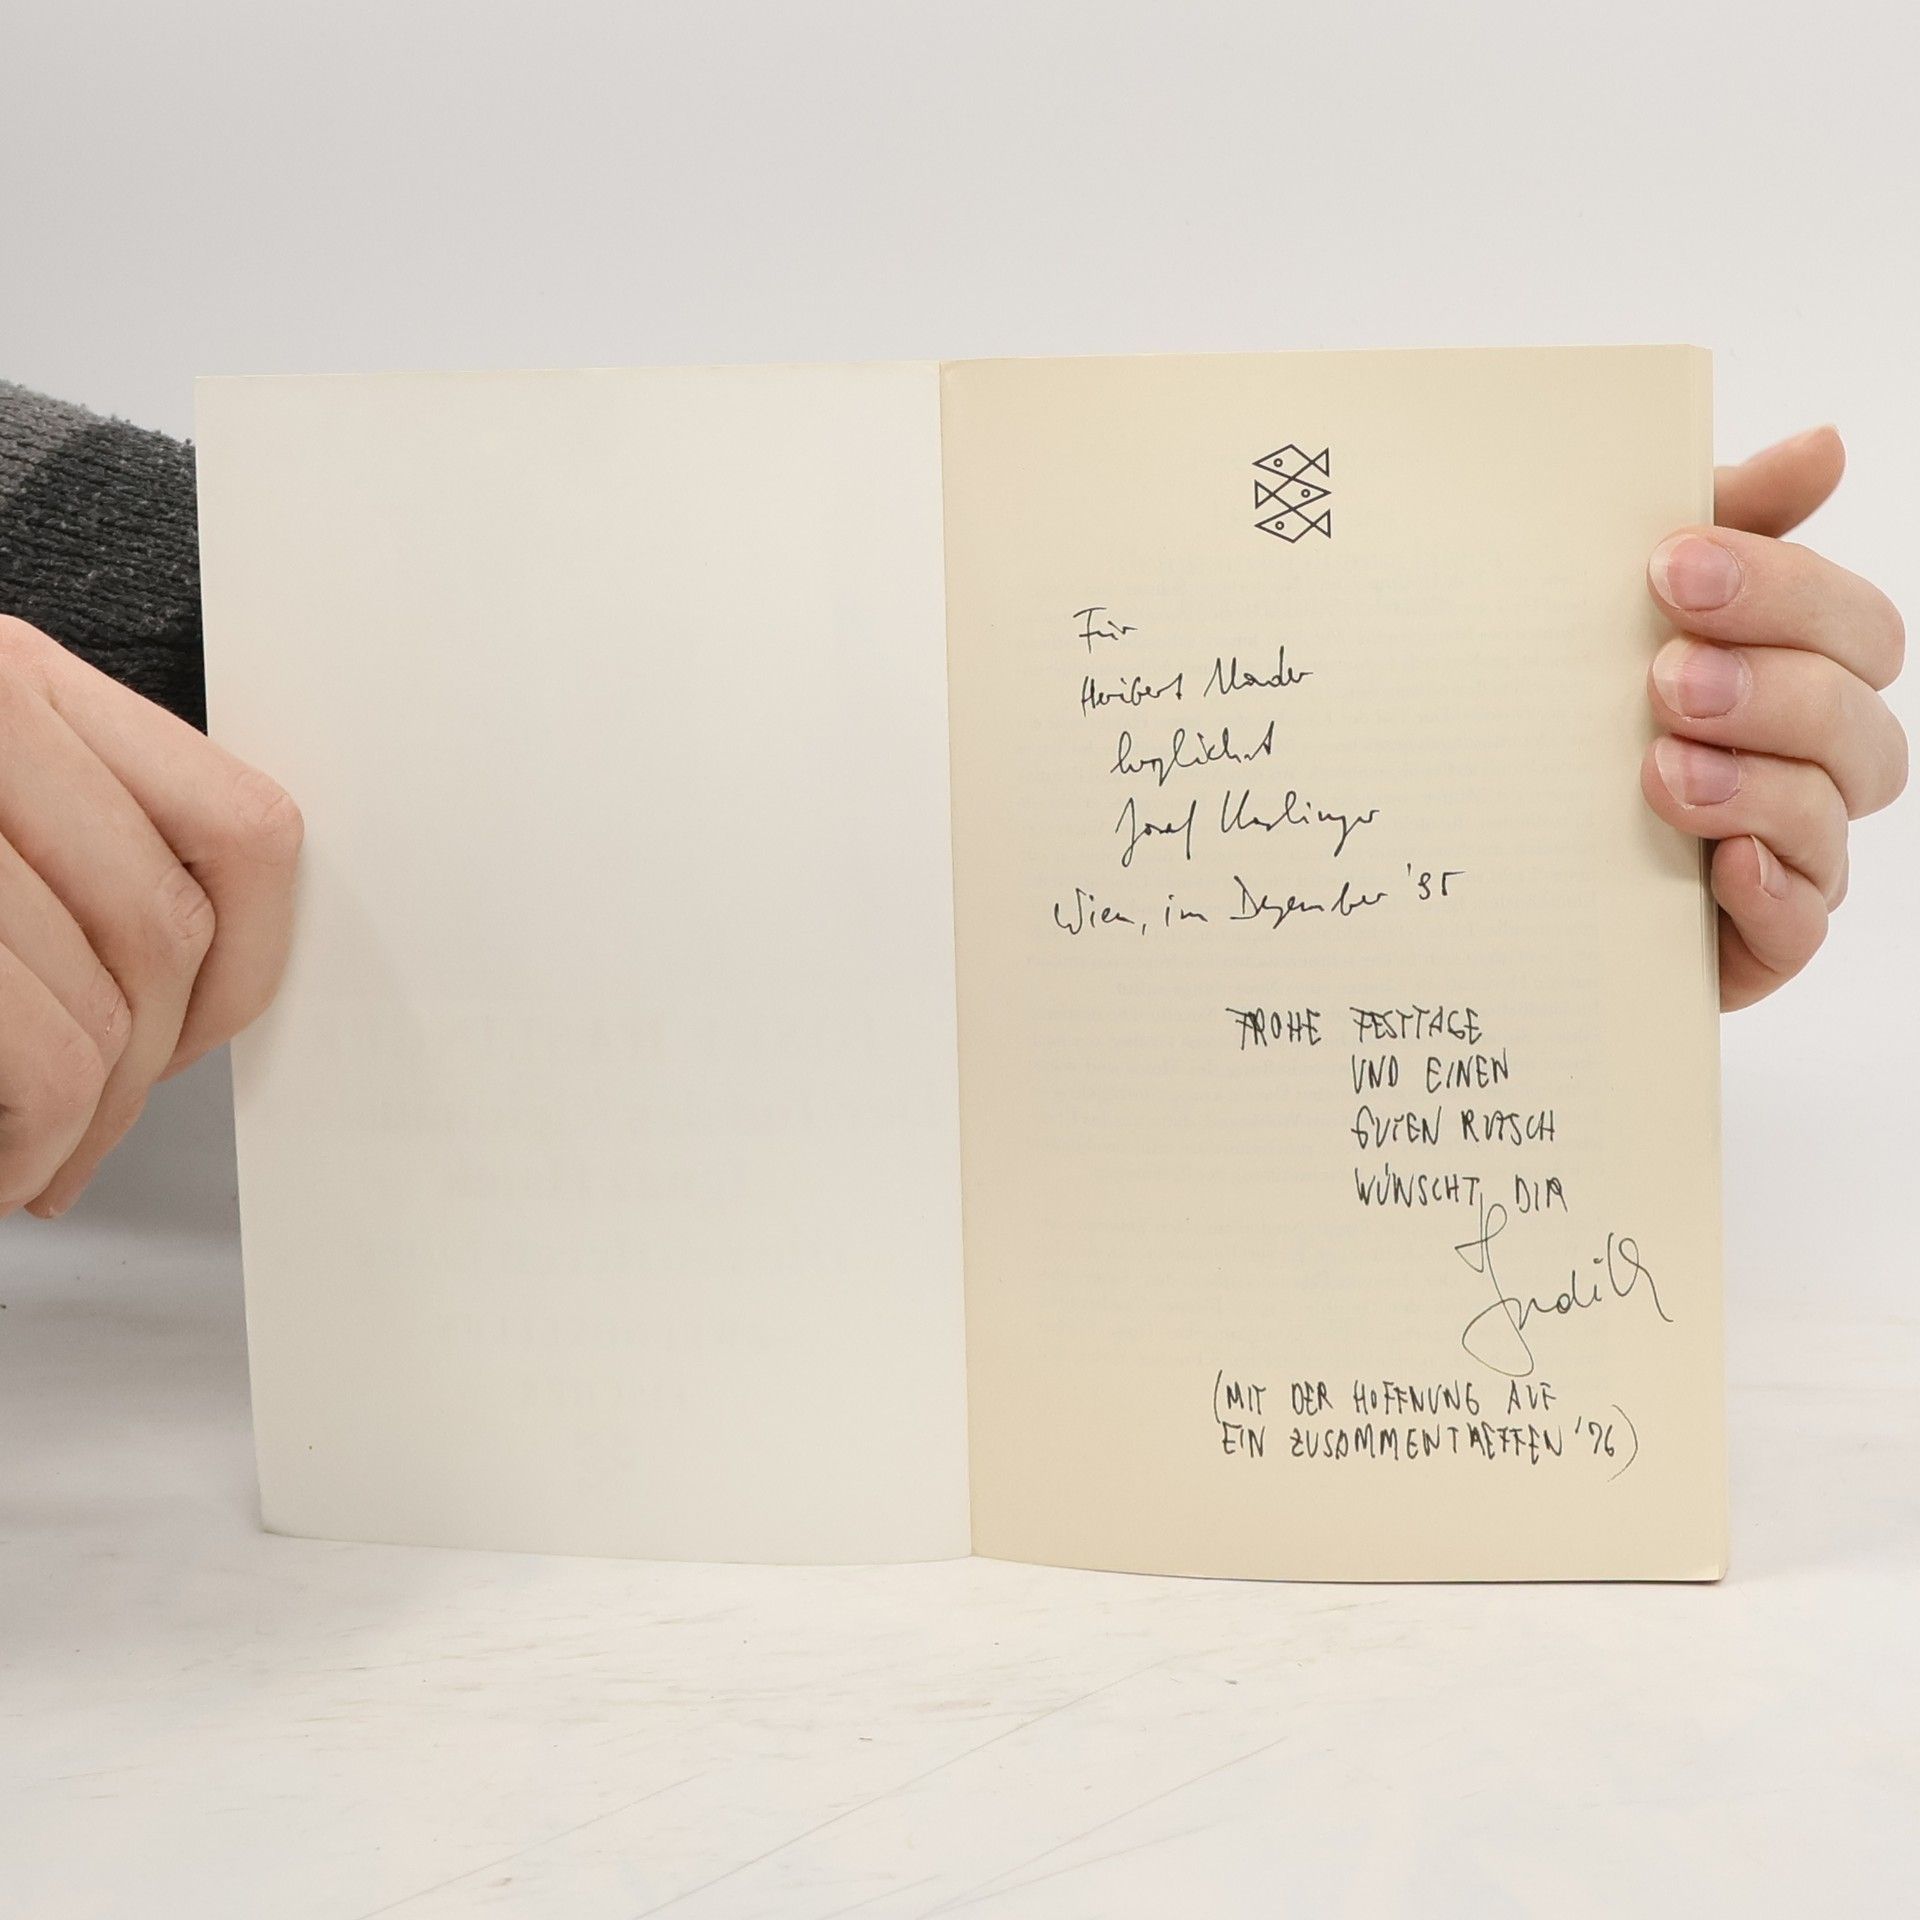 Für
Heribert Mader
herzlichst
Josef Haslinger
Wien, im Dezember '95
FROHE FESTTAGE
UND EINEN
GUTEN RUTSCH
WÜNSCHT DIR
Judith
(MIT DER HOFFNUNG AUF
EIN ZUSAMMENTREFFEN '96)